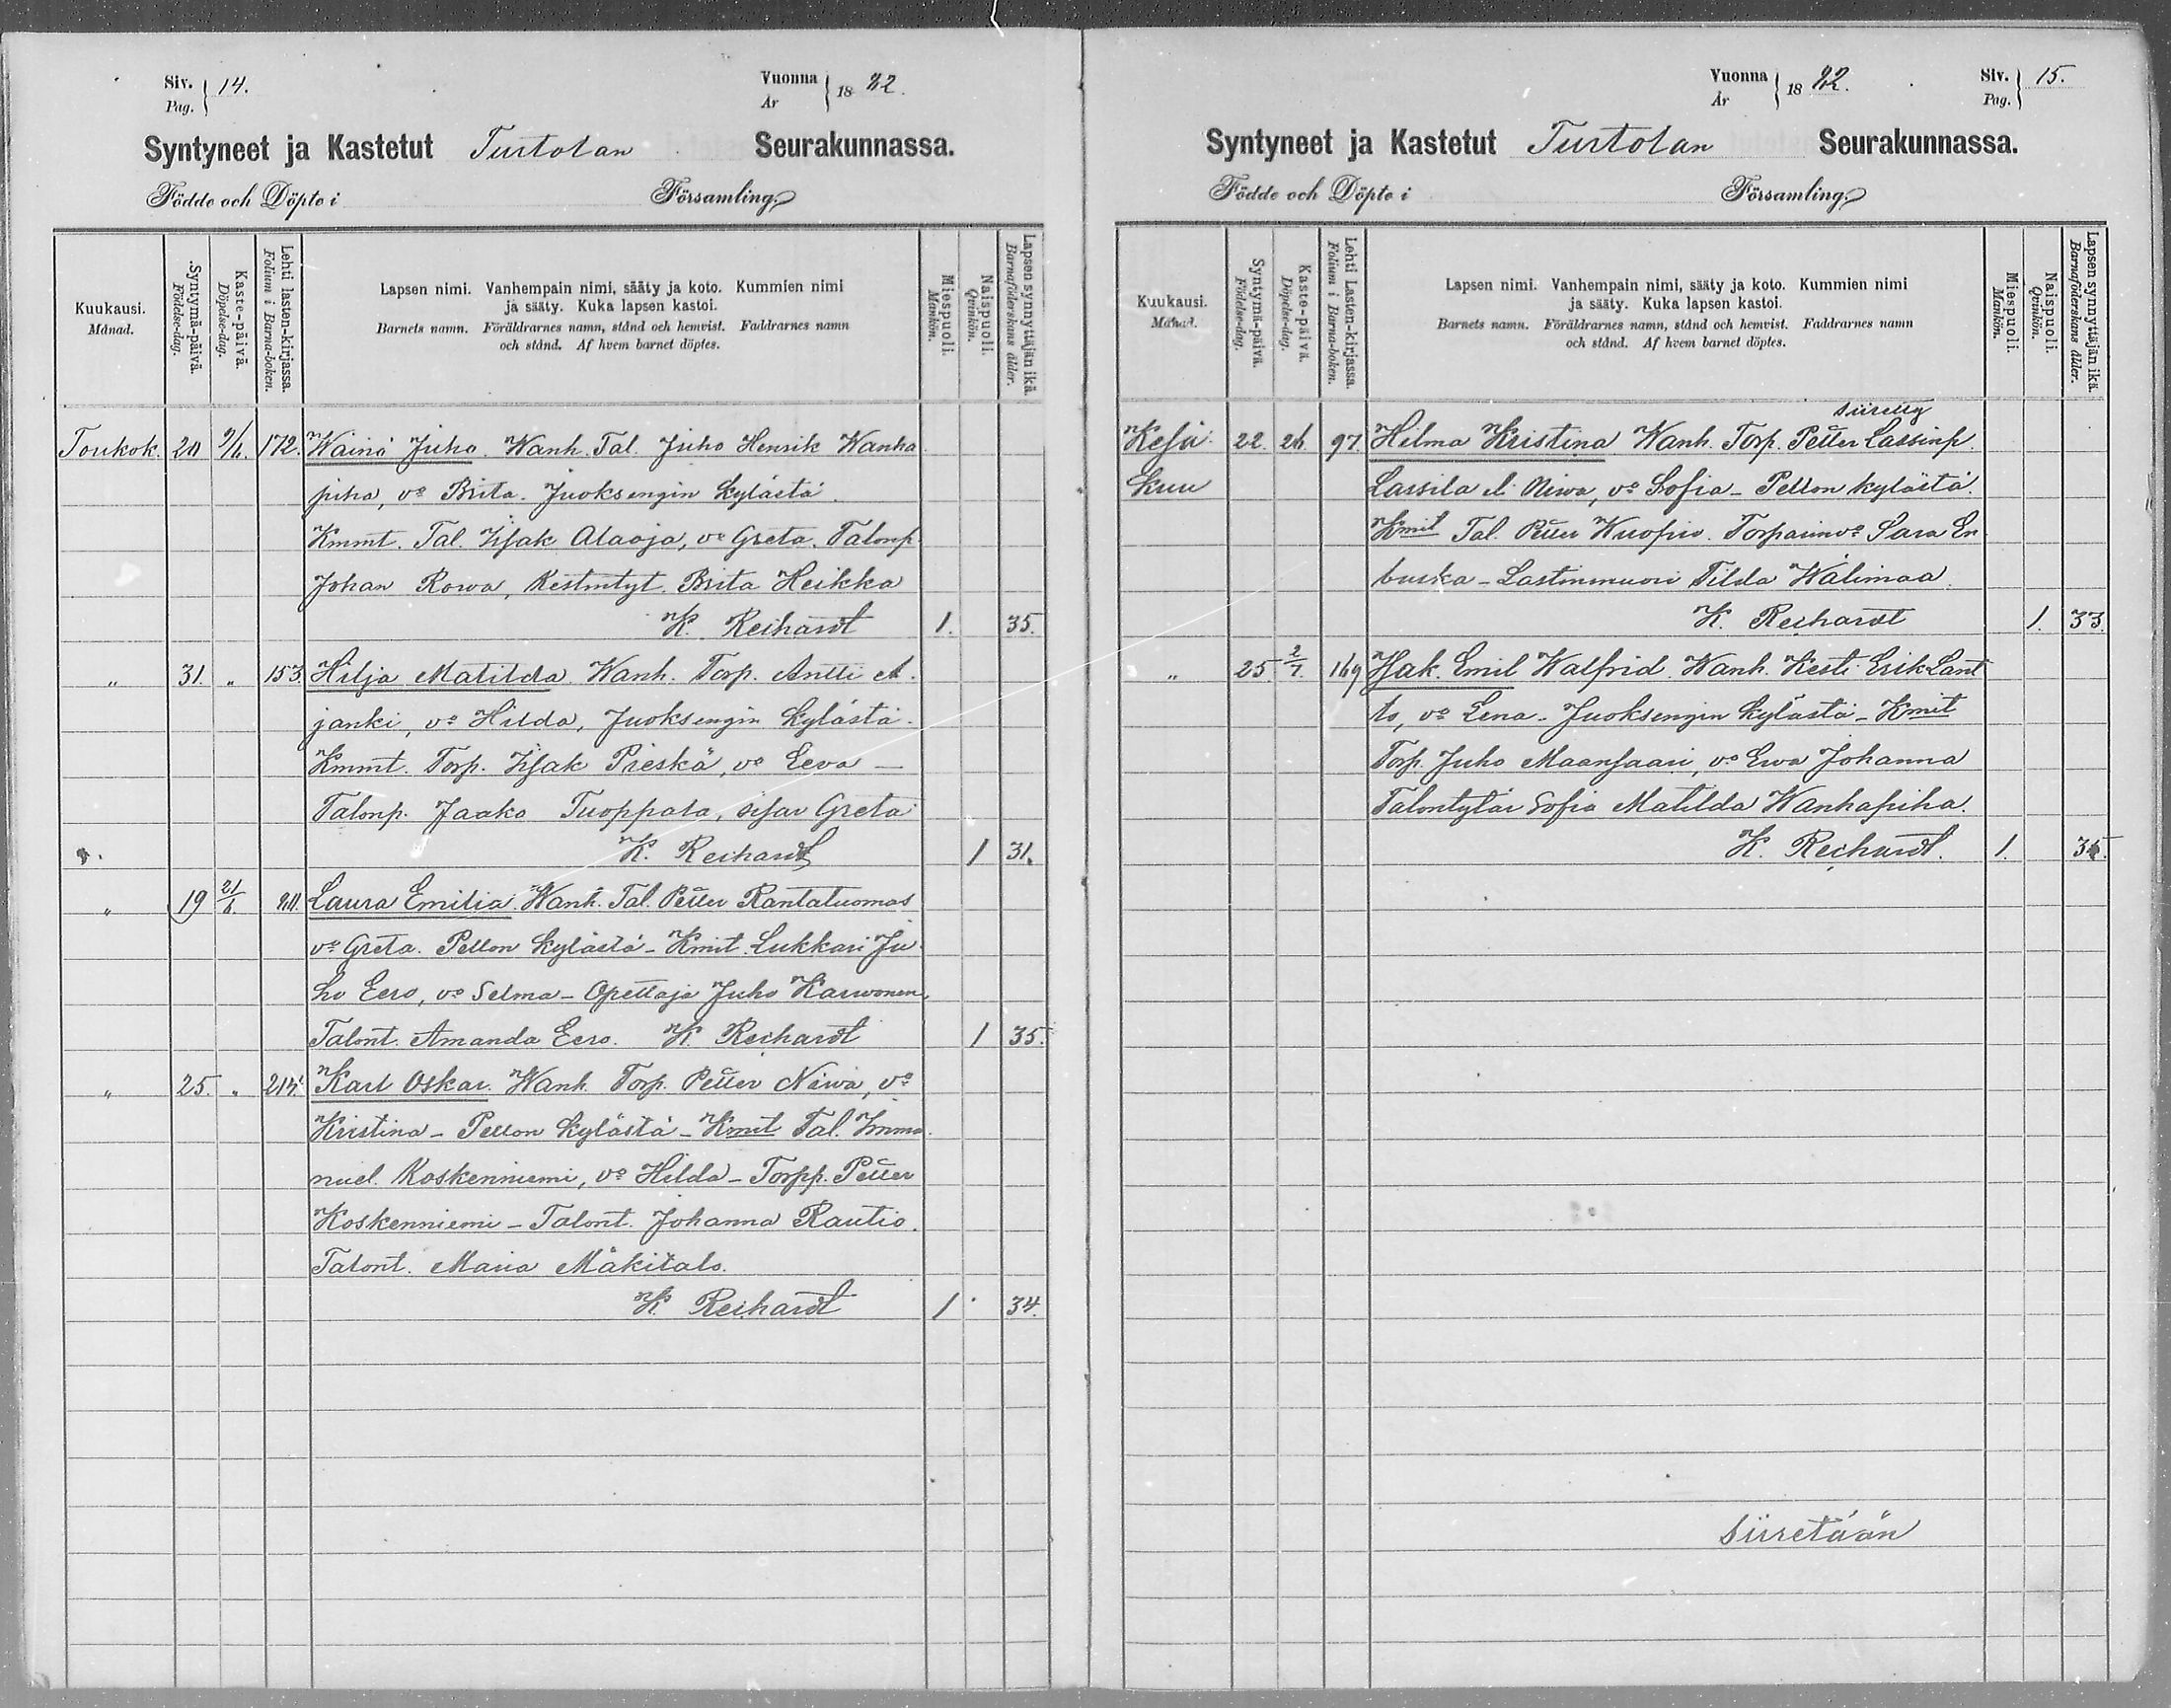 Siv. 14.
Pag.
Vuonna 1882.
År
Syntyneet ja Kastetut Turtolan Seurakunnassa.
Födde och Döpte i Församling.
Kuukausi.
Månad.
Syntymä-päivä.
Födelse-dag.
Kaste-päivä.
Döpelse-dag.
Lehti lasten-kirjassa.
Folium i Barna-boken.
Lapsen nimi. Vanhempain nimi, sääty ja koto. Kummien nimi
ja sääty. Kuka lapsen kastoi.
Barnets namn. Föräldrarnes namn, stånd och hemvist. Faddrarnes namn
och stånd. Af hvem barnet döptes.
Miespuoli.
Mankön.
Naispuoli.
Qvinkön.
Lapsen synnyttäjän ikä.
Barnaföderskans ålder.
Toukok. 20 9/6. 172. Wäinö Juho. Wanh. Tal. Juho Henrik Wanha
piha, vo Brita. Juoksengin kylästä.
Kmmt. Tal. Iisak Alaoja, vo Greta. Talonp
Johan Rowa, Kestintyt. Brita Heikka
K. Reihardt 1. 35.
" 31. " 153 Hilja Matilda. Wanh. Torp. Antti A.
janki, vo Hilda, Juoksengin kylästä.
Kmmt. Torp. Iisak Pieskä, vo Eeva —
Talonp. Jaako Tuoppala, sisar Greta
K. Reihardt 1 31.
" 19 21/6. Laura Emilia. Wanh. Tal. Petter Rantatuomas
vo Greta. Pellon kylästä - Kmit. Lukkari Ju
ho Eero, vo Selma - Opettaja Juho Karvonen,
Talont. Amanda Eero. K. Reihardt 1 35.
" 25. " Karl Oskar. Wanh. Torp. Petter Niwa, vo
Kristina - Pellon kylästä - Kmit Tal. Imma
nuel Koskenniemi, vo Hilda - Torpp. Petter
Koskenniemi - Talont. Johanna Rautio.
Talont. Maria Mäkitalo.
K. Reihardt 1 34.
Vuonna 1882.
År
Siv. 15.
Pag.
Syntyneet ja Kastetut Turtolan Seurakunnassa.
Födde och Döpte i Församling.
Kuukausi.
Månad.
Syntymä-päivä.
Födelse-dag.
Kaste-päivä.
Döpelse-dag.
Lehti Lasten-kirjassa.
Folium i Barna-boken.
Lapsen nimi. Vanhempain nimi, sääty ja koto. Kummien nimi
ja sääty. Kuka lapsen kastoi.
Barnets namn. Föräldrarnes namn, stånd och hemvist. Faddrarnes namn
och stånd. Af hvem barnet döptes.
Miespuoli.
Mankön.
Naispuoli.
Qvinkön.
Lapsen synnyttäjän ikä.
Barnaföderskans ålder.
Kesä 22. 26. 97. Hilma Kristina Wanh. Torp. Petter Lassinp.
kuu Lassila el. Niwa, vo Sofia - Pellon kylästä.
Kmit Tal. Petter Kuopio. Torparinvo Sara En
buska - Lastinmuori Tilda Wälimaa.
K. Reihardt 1. 33.
" 25. 2/7. 169 Isak Emil Walfrid. Wanh. Kesti. Erik Lant
to, vo Lena - Juoksengin kylästä - Kmit
Torp. Juho Maansaari, vo Ewa Johanna
Talontytär Sofia Matilda Wanhapiha.
K. Reihardt. 1.
Siirretään